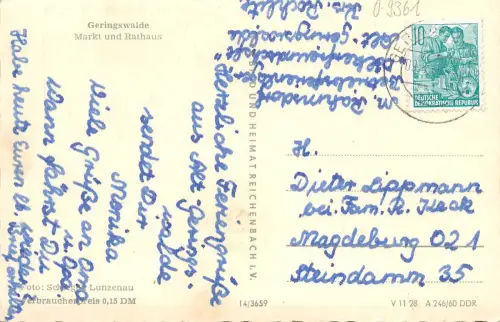 Geringswalde
Markt und Rathaus
0-9361
10
DEUTSCHE
DEMOKRATISCHE REPUBLIK
Herzliche Feriengrüße
aus Alt-Gerings-
walde
sendet Dir
Monika
Viele Grüße an Oma
u. Gerd
Wann fährst Du
Habe heute Euren lb.
BILD UND HEIMAT REICHENBACH i. V.
H.
Dieter Lippmann
bei Fam. R.
Magdeburg 021
Steindamm 35
Foto: Lunzenau
Verbraucherpreis 0,15 DM
14/3659
V 11 28 A 246/60 DDR